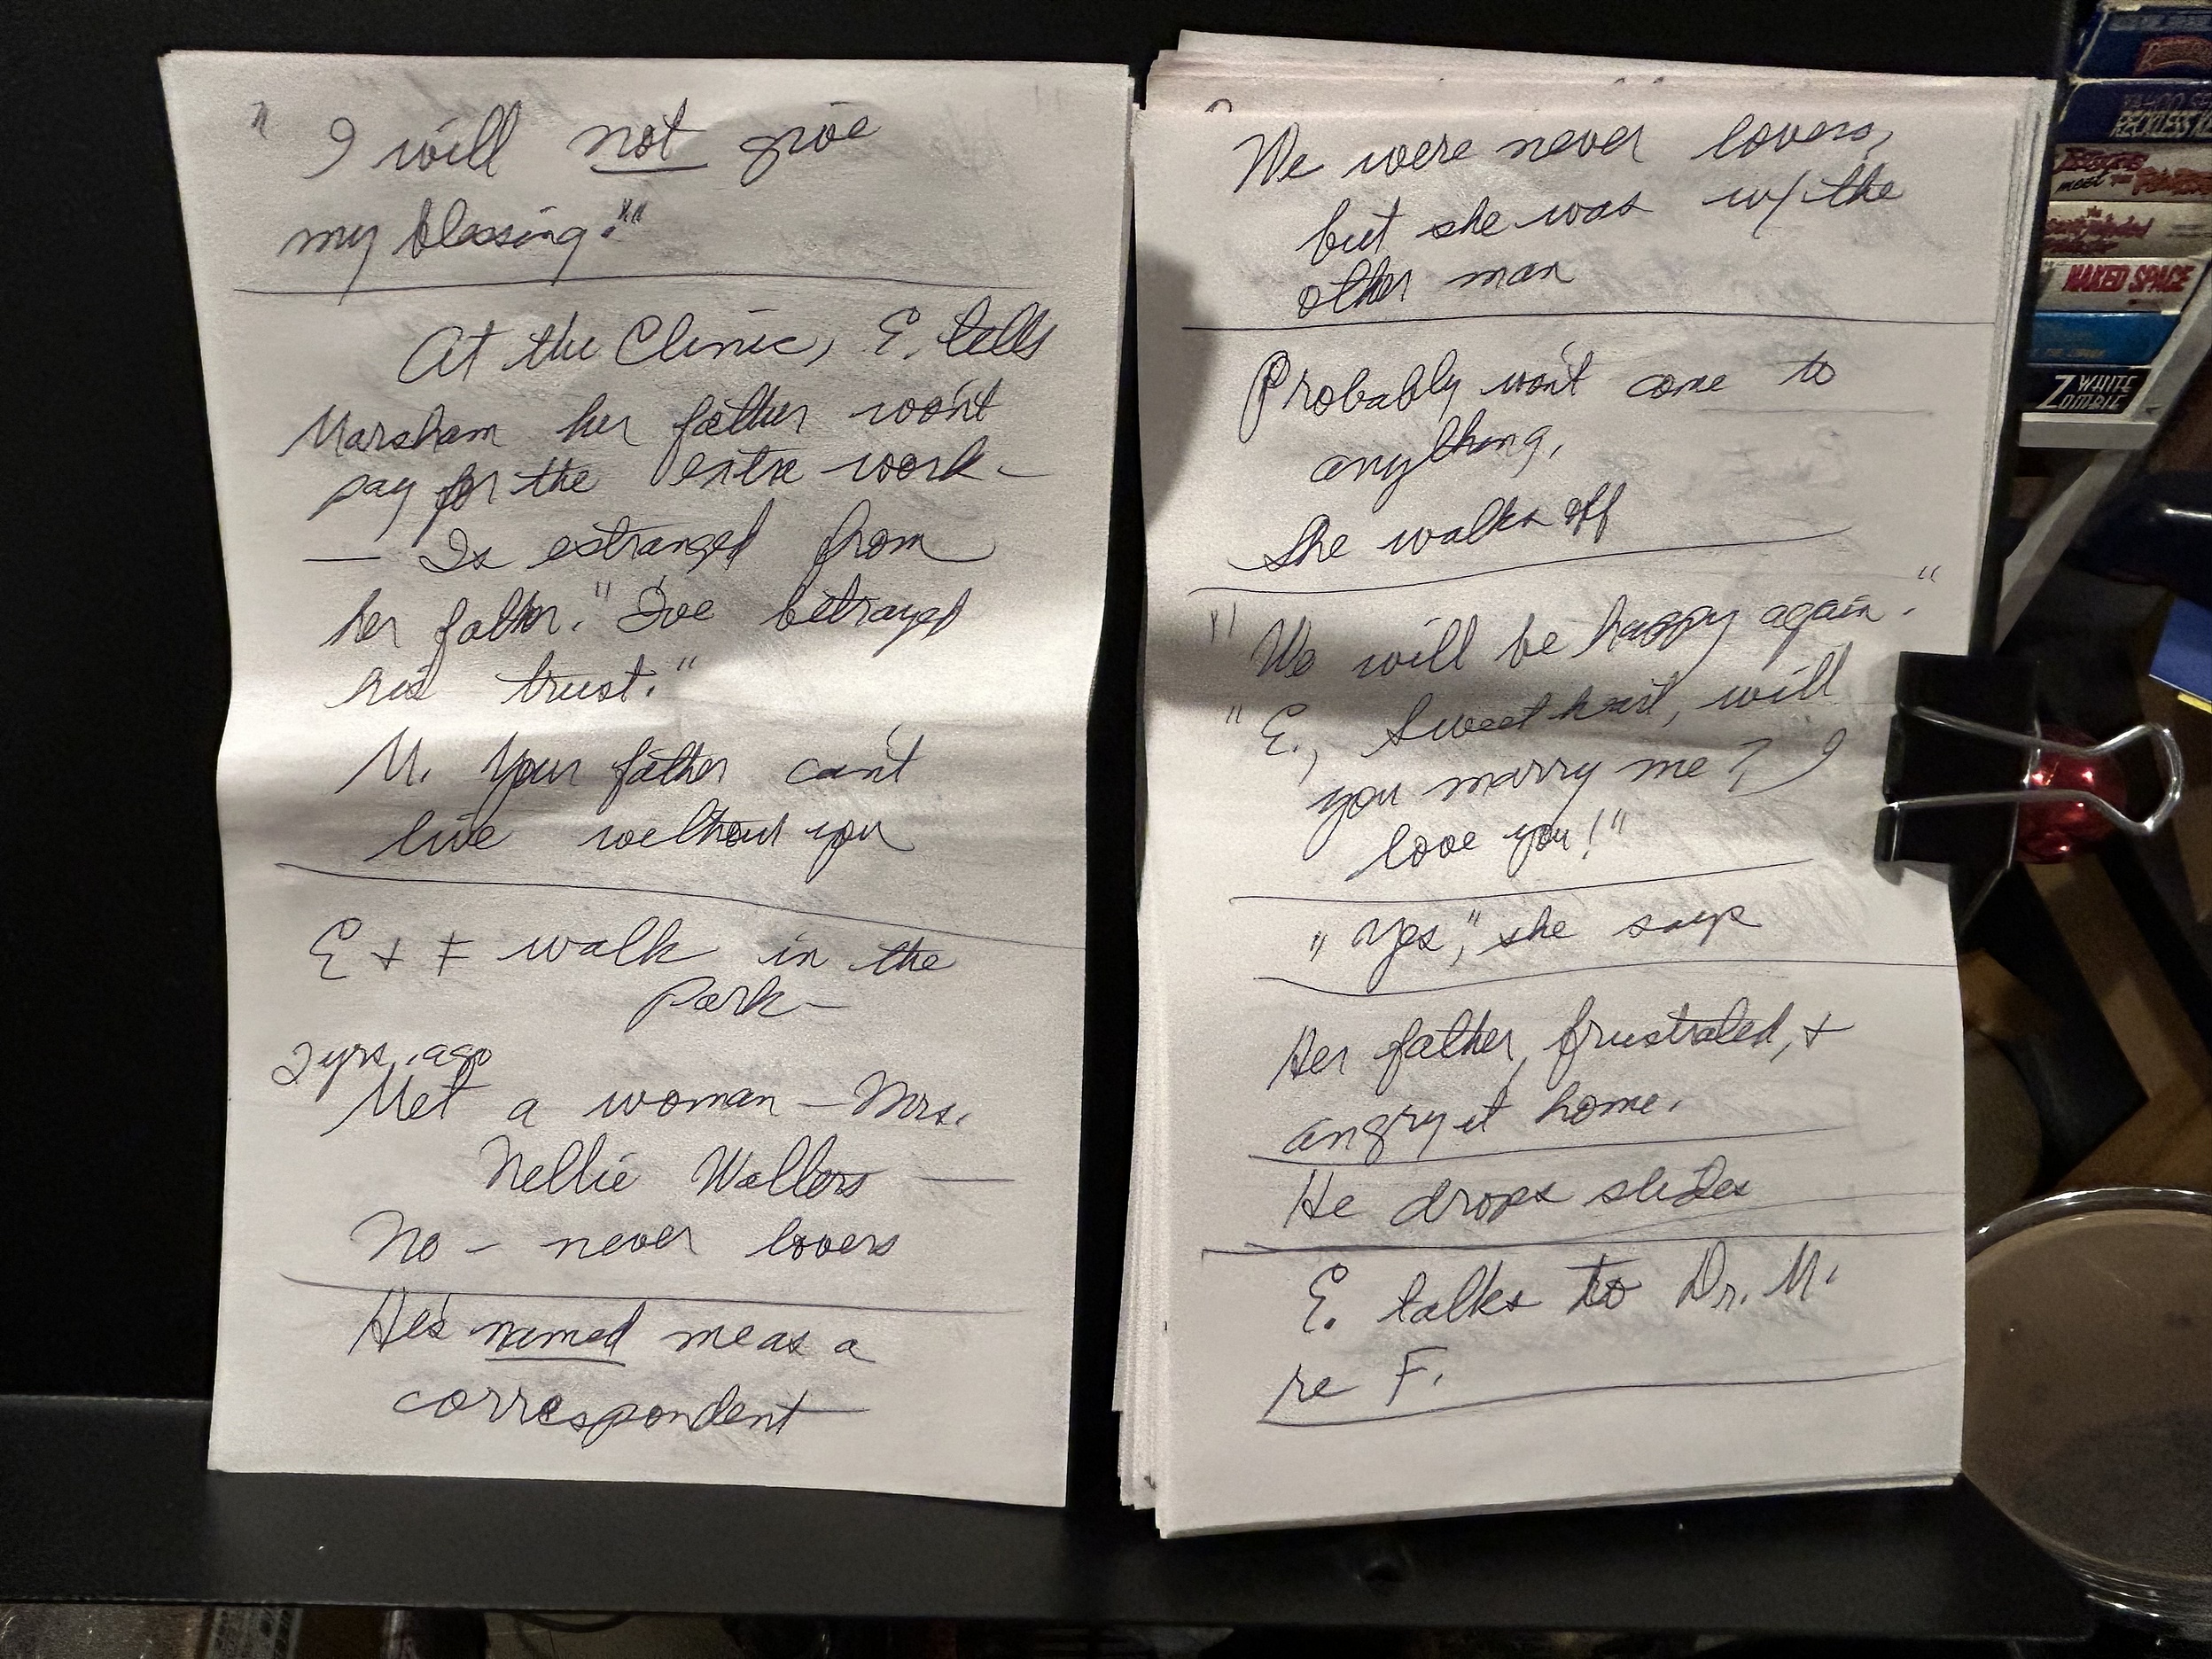 " I will not give
my blessing.""
At the Clinic, E. tells
Marsham her father won't
pay for the extra work —
— Is estranged from
her father. "I've betrayed
his trust."
M. Your father can't
live without you
E + F walk in the
Park —
2 yrs. ago
Met a woman — Mrs.
Nellie Walters —
No — never lovers
He's named me as a
correspondent
We were never lovers,
but she was w/ the
other man
Probably won't come to
anything,
She walks off
"We will be happy again."
"E., Sweetheart, will
you marry me? I
love you!"
"Yes," she says
Her father, frustrated, +
angry at home.
He drops slides
E. talks to Dr. M.
re F.
RECKLESS
meet the
NAKED SPACE
WHITE
ZOMBIE